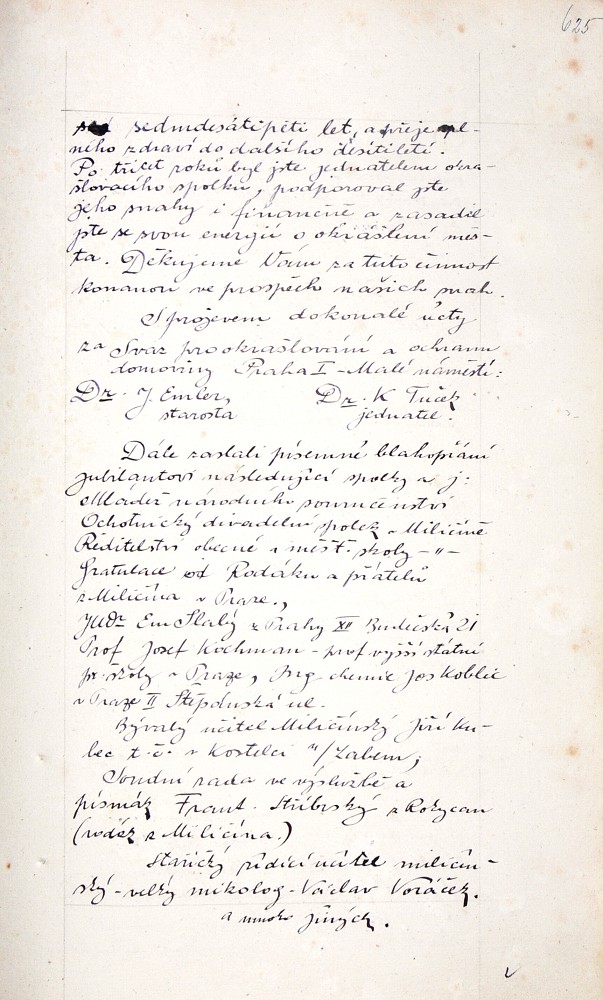 625
sedmdesátipěti let, a přeje pl-
ného zdraví do dalšího desítiletí.
Po třicet roků byl jste jednatelem okra-
šlovacího spolku, podporoval jste
jeho snahy i finančně a zasadil
jste se svou energií o okrášlení měs-
ta. Děkujeme Vám za tuto činnost
konanou ve prospěch našich snah.
S projevem dokonalé úcty
za Svaz pro okrašlování a ochranu
domoviny Praha I - Malé náměstí:
Dr. J. Emler, Dr. K Tuček
starosta jednatel.
Dále zaslali písemné blahopřání
jubilantovi následující spolky a j:
Mládež národního souručenství
Ochotnický divadelní spolek v Miličíně
Ředitelství obecné i měšť. školy - " -
Gratulace od Rodáků a přátelů
z Miličína v Praze.,
JUDr Em Slabý z Prahy XII Budečská 21
Prof Josef Kochman - prof vyšší státní
pr. školy v Praze, Ing chemie Jos Koblic
v Praze II Štěpánská ul.
Bývalý učitel Miličínský Jiří Ku-
bec t. č. v Kostelci n/Labem,
Soudní rada ve výslužbě a
písmák Frant. Stříbrský z Rokycan
(rodák z Miličína.)
Stařičký řídící učitel miličín-
ský - velký mikolog - Václav Voráček.
a mnoho jiných.